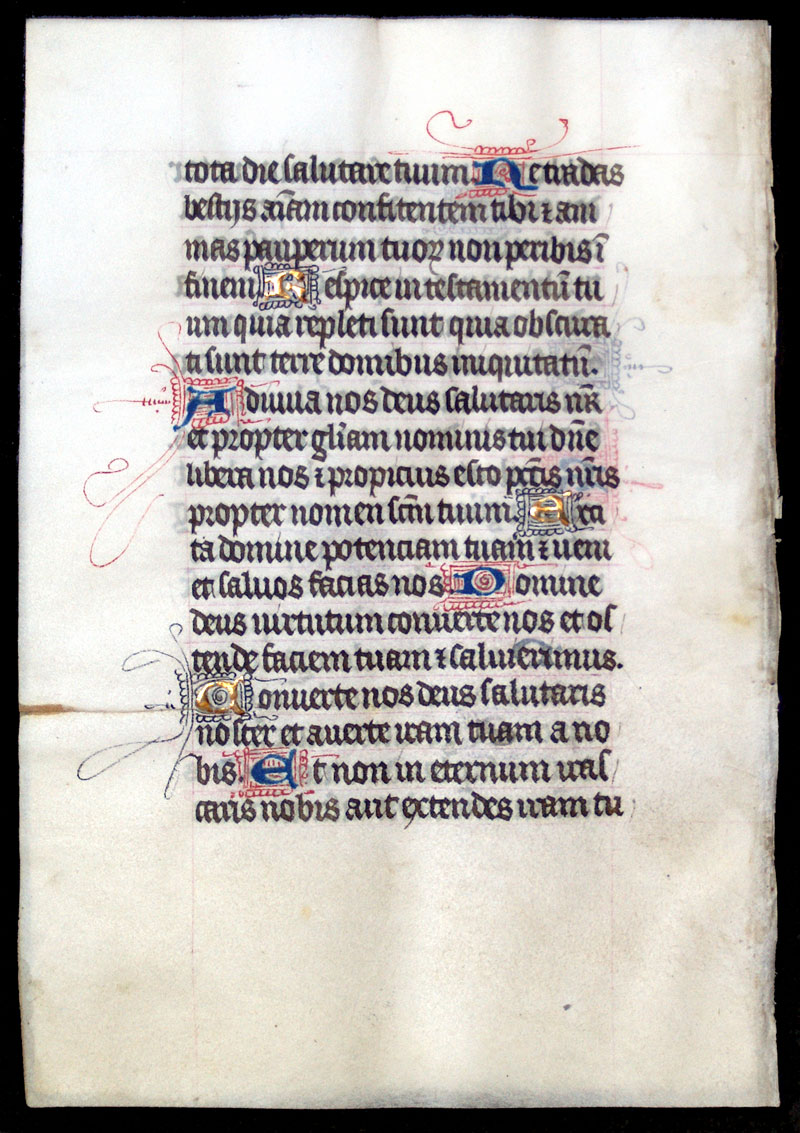 tota die salutare tuum. Ne tradas
bestijs aīam confitentem tibi ⁊ ani
mas pauperum tuoꝝ non peribis ī
finem. Respice in testamentū tu
um quia repleti sunt quia obscura
ti sunt terre domibus iniquitatū.
Adiuua nos deus salutaris nr̄
et propter gl̄iam nominis tui dn̄e
libera nos ⁊ propicius esto pctīs nr̄is
propter nomen scm̄ tuum. Exci
ta domine potenciam tuam ⁊ ueni
et saluos facias nos Domine
deus uirtutum conuerte nos et os
tende faciem tuam ⁊ salui erimus.
Conuerte nos deus salutaris
noster et auerte iram tuam a no
bis. Et non in eternum iras
caris nobis aut extendes iram tu